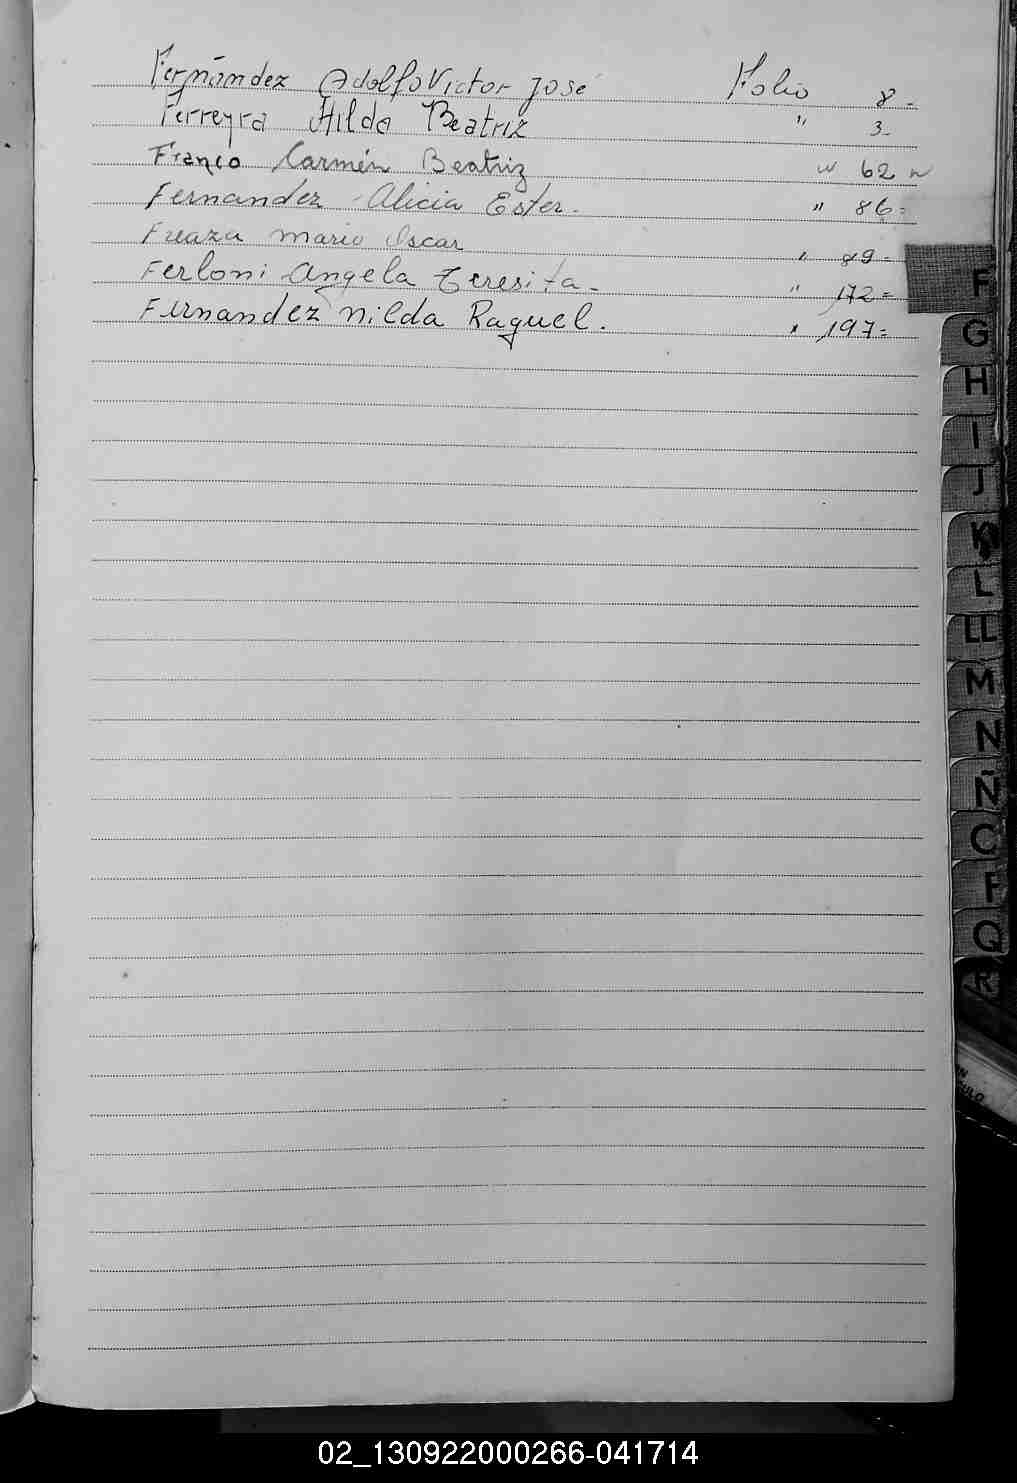 Fernández Adolfo Victor José Folio 8 -
Ferreyra Hilda Beatriz " 3 -
Franco Carmén Beatriz " 62 "
Fernandez Alicia Ester. " 86 =
Freaza Mario Oscar " 89 =
Ferloni Angela Teresita - " 172 =
Fernandez Nilda Raquel. " 197 =
F
G
H
I
J
K
L
LL
M
N
Ñ
O
P
Q
R
02_130922000266-041714